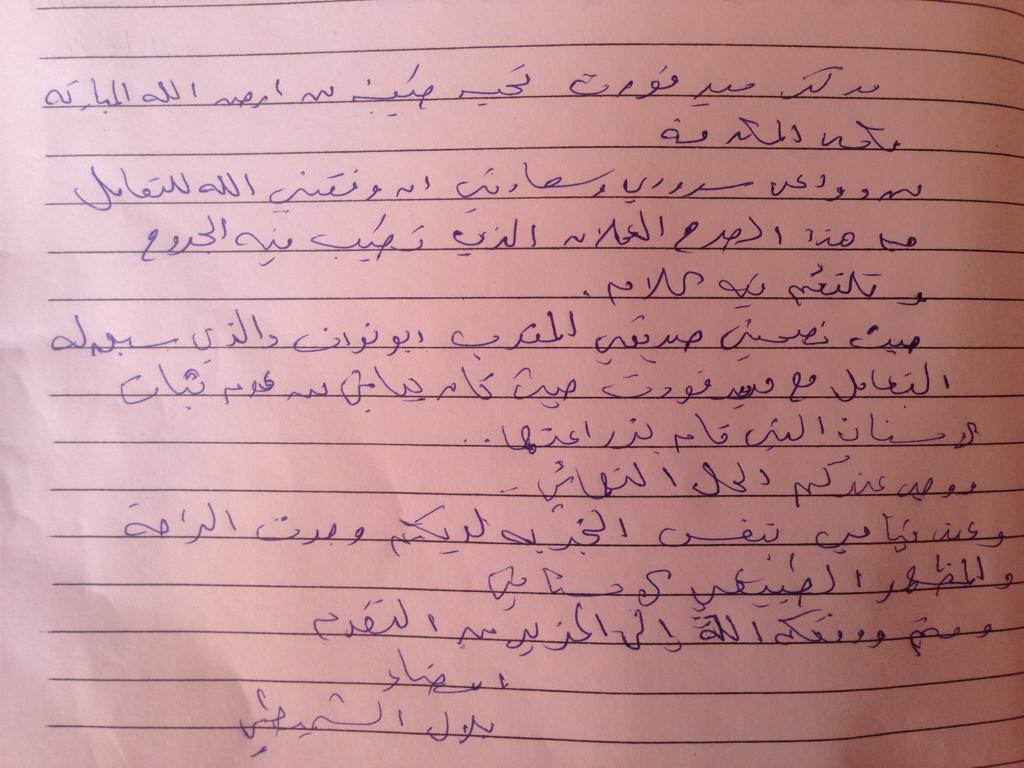 مركز ميد فورت تحيه طيبه من ارض الله المباركه
مكه المكرمة
من دواعي سروري وسعادتي ان وفقني الله للتعامل
مع هذا الصرح العملاق الذي تطيب فيه الجروح
و تلتئم فيه الالام .
حيث نصحني صديقي المقرب ابو نواف والذي سبق له
التعامل مع ميد فورت حيث كان يعاني من عدم ثبات
الاسنان التي قام بزراعتها ..
ووجد عندكم الحل النهائي ..
وعند قيامي بنفس التجربه لديكم وجدت الراحة
والمظهر الطبيعي لاسناني
ودمتم ووفقكم الله إلى المزيد من التقدم
امضاء
بلال